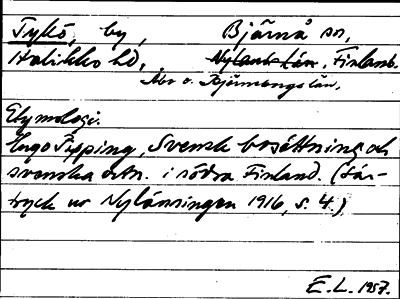 Tykö, by, Bjärnå sn,
Halikko hd, Nylands län, Finland.
Åbo o. Björneborgs län.
Etymologi.
Hugo Pipping, Svensk bosättning och
svenska ortn. i södra Finland. (Sär-
tryck ur Nylänningen 1916, s. 4.)
E.L. 1957.